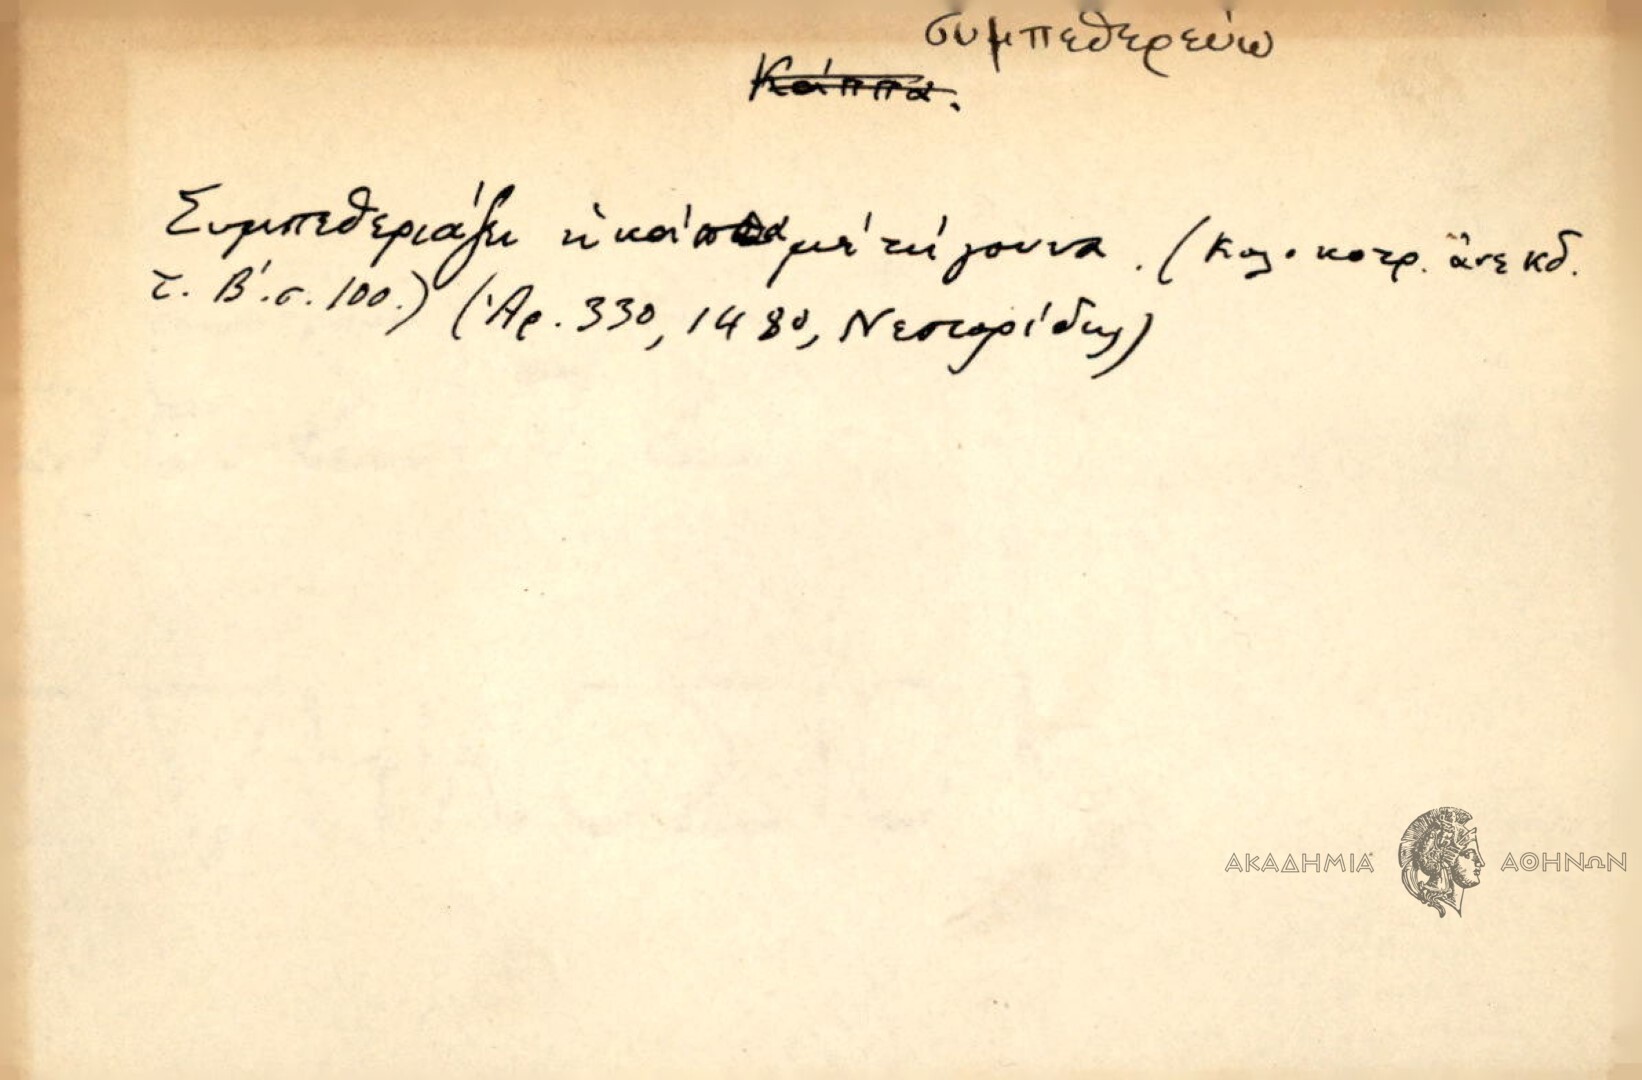 συμπεθερεύω
Κάππα.
Συμπεθεριάζει ἡ κάππα μὲ τὴ γούνα. (Κολοκοτρ. ἀνεκδ.
τ. Β'. σ. 100.) (Ἀρ. 330, 1480, Νεστορίδης)
ΑΚΑΔΗΜΙΑ ΑΘΗΝΩΝ